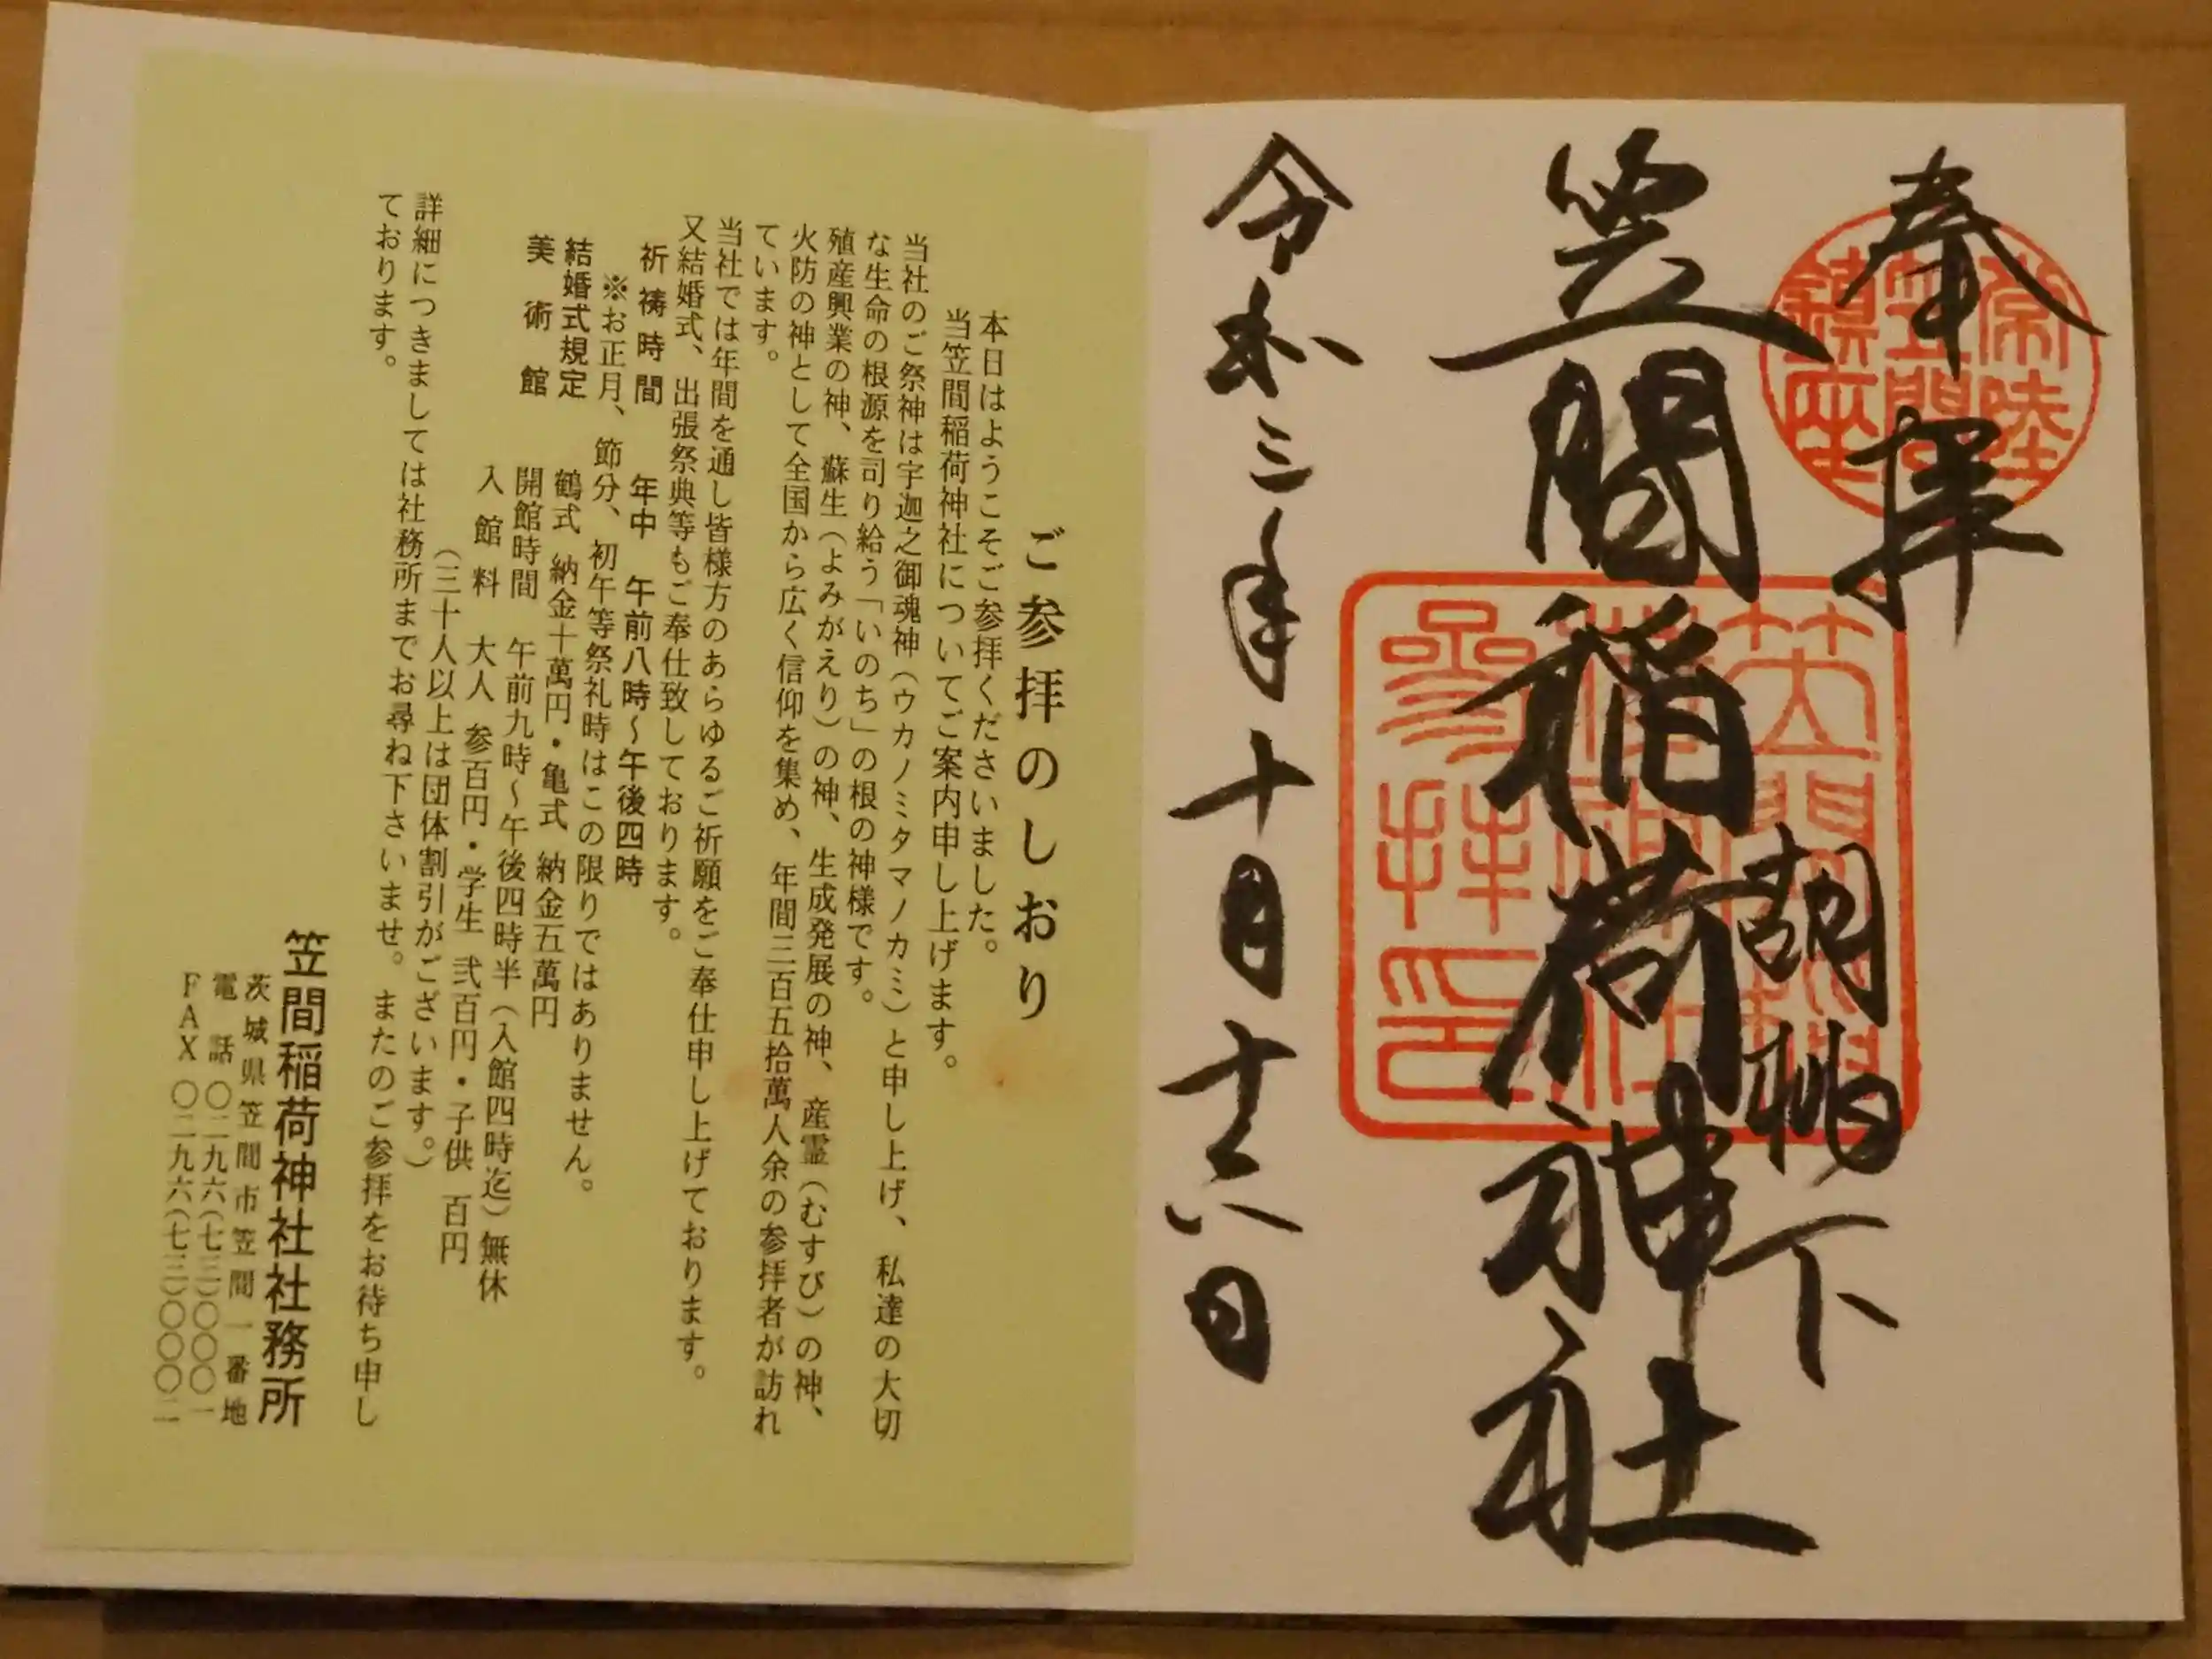 奉拝
胡桃下
笠間稲荷神社
令和三年十月十六日
常陸
笠間
鎮座
笠間稲
荷神社
参拝印
ご参拝のしおり
本日はようこそご参拝くださいました。
当笠間稲荷神社についてご案内申し上げます。
当社のご祭神は宇迦之御魂神（ウカノミタマノカミ）と申し上げ、私達の大切
な生命の根源を司り給う「いのち」の根の神様です。
殖産興業の神、蘇生（よみがえり）の神、生成発展の神、産霊（むすび）の神、
火防の神として全国から広く信仰を集め、年間三百五拾萬人余の参拝者が訪れ
ています。
当社では年間を通し皆様方のあらゆるご祈願をご奉仕申し上げております。
又結婚式、出張祭典等もご奉仕致しております。
祈祷時間　年中　午前八時～午後四時
※お正月、節分、初午等祭礼時はこの限りではありません。
結婚式規定　鶴式　納金十萬円・亀式　納金五萬円
美術館　開館時間　午前九時～午後四時半（入館四時迄）無休
入館料　大人　参百円・学生　弐百円・子供　百円
（三十人以上は団体割引がございます。）
詳細につきましては社務所までお尋ね下さいませ。またのご参拝をお待ち申し
ております。
笠間稲荷神社社務所
茨城県笠間市笠間一番地
電話　〇二九六（七三）〇〇〇一
ＦＡＸ　〇二九六（七三）〇〇〇二